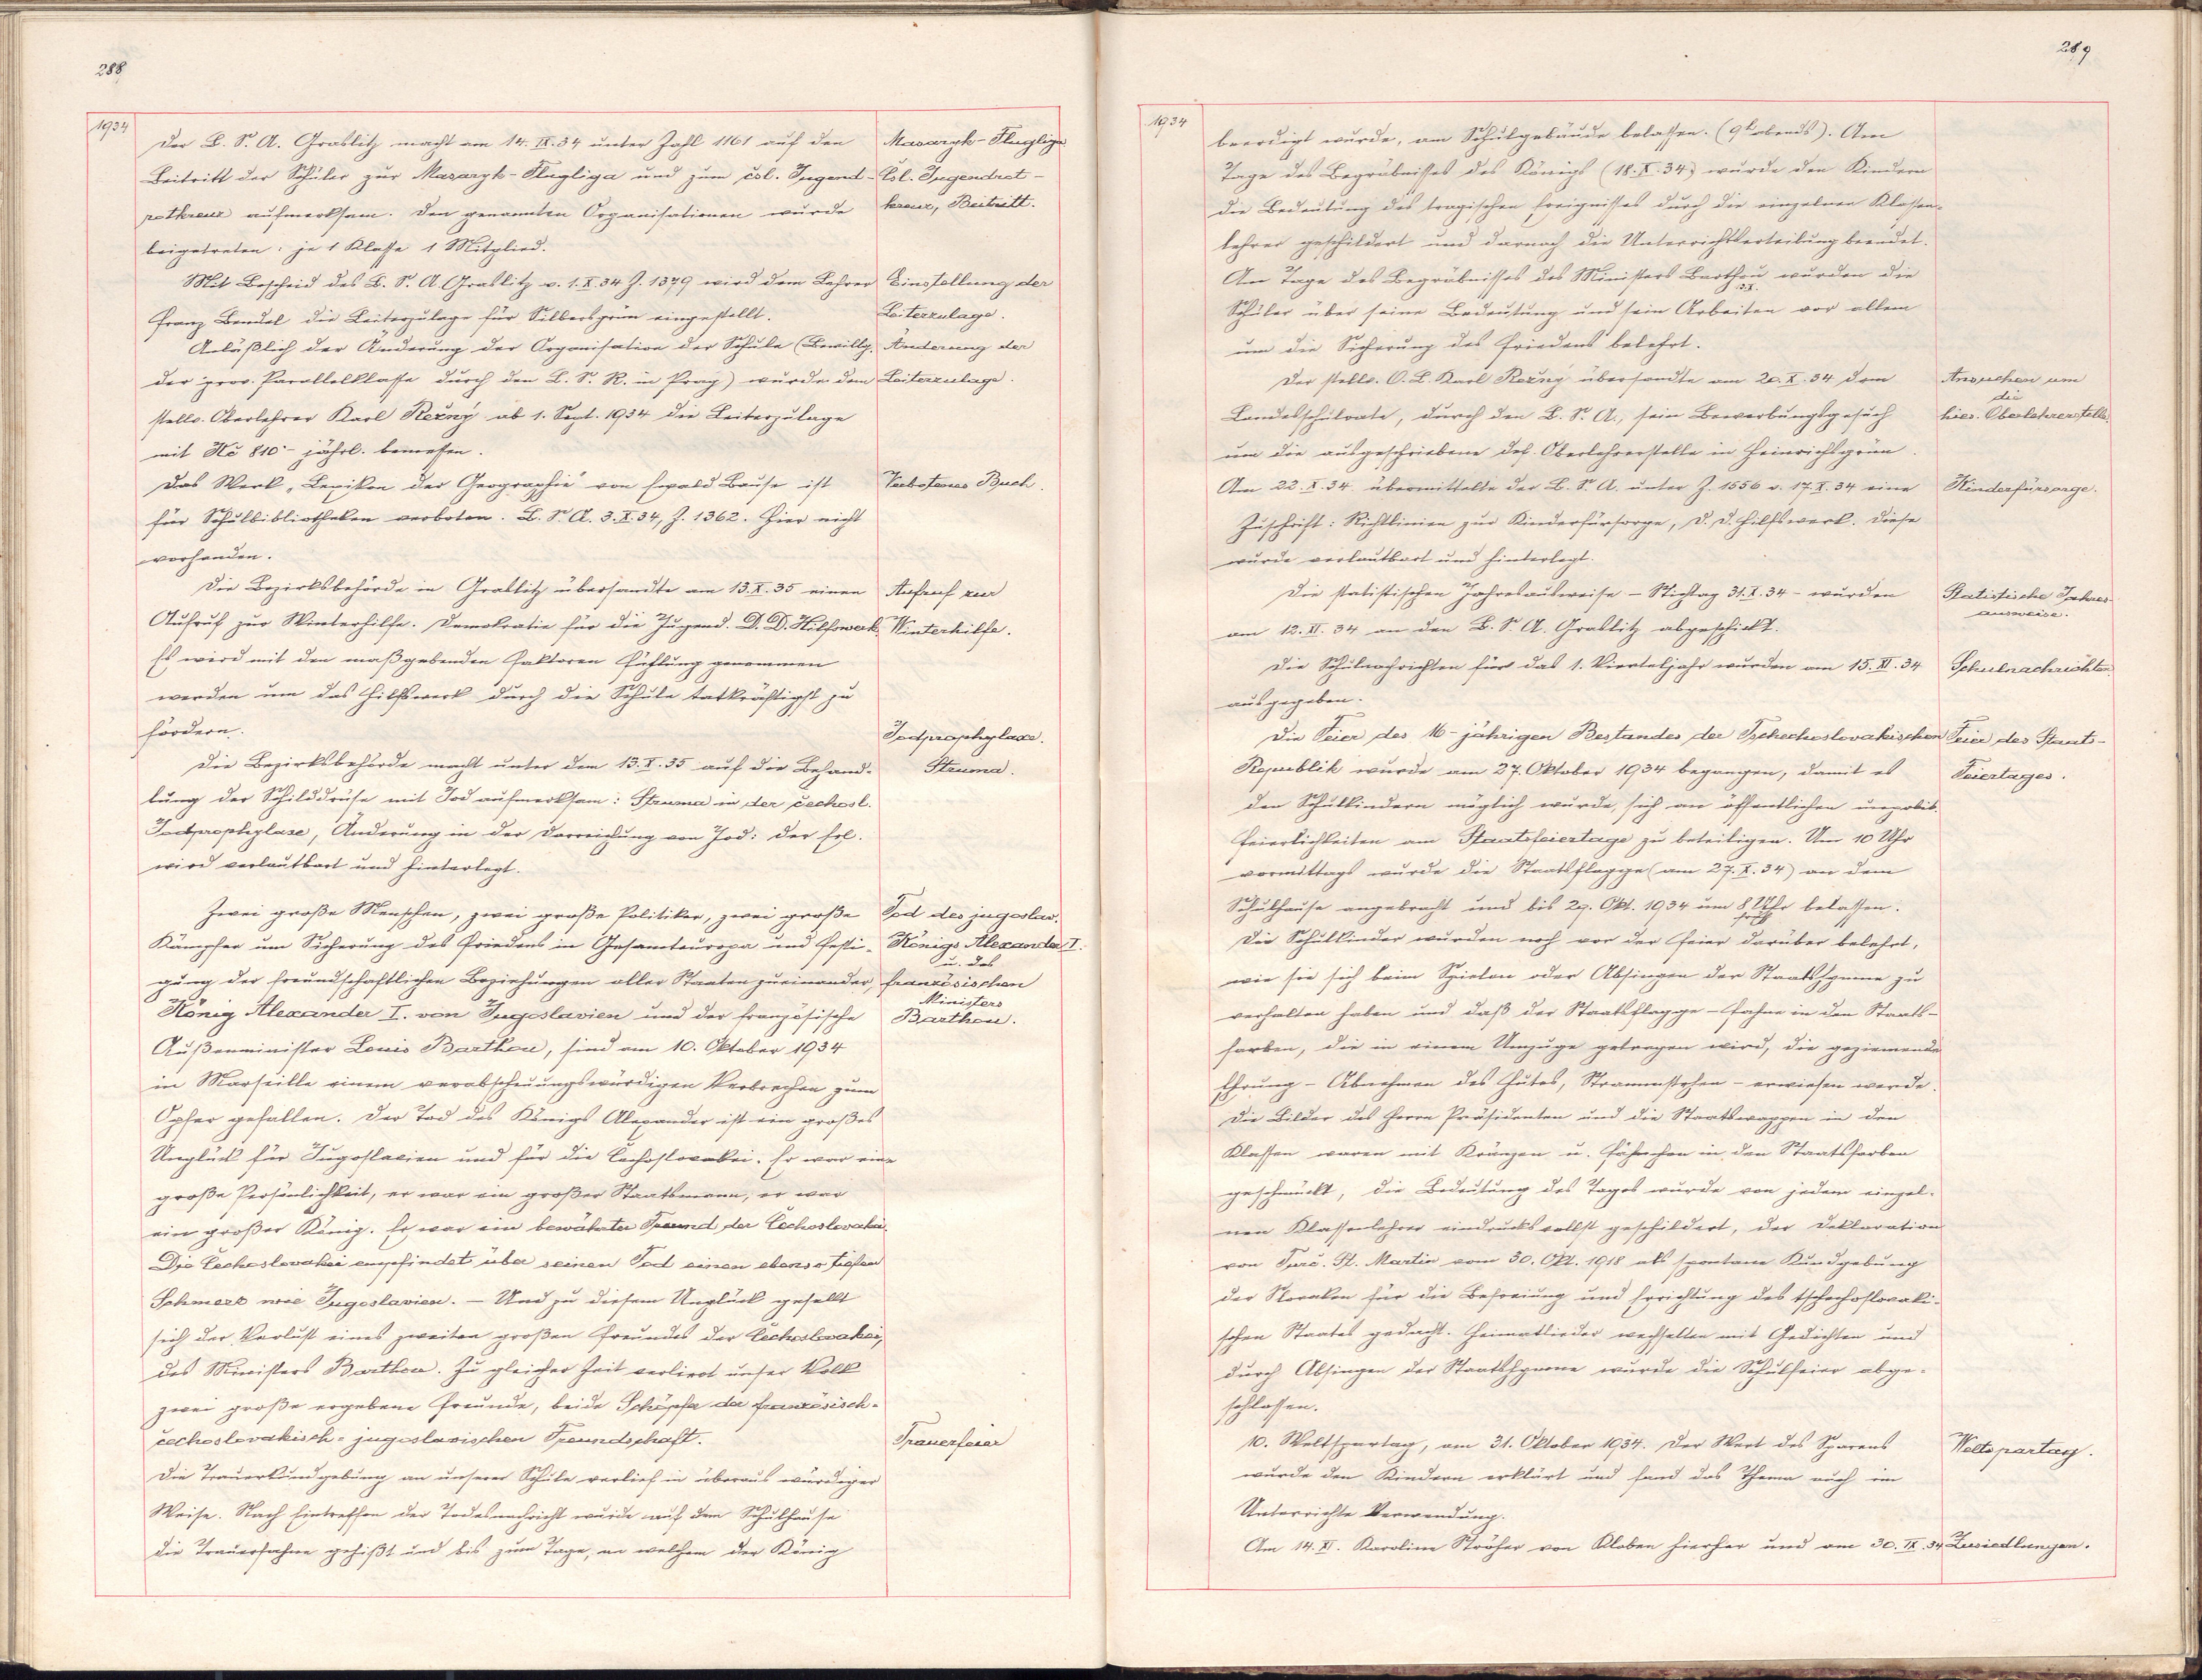 288
1934
Der B. S. A. Graslitz macht am 14. IX. 34 unter Zahl 1161 auf den
Masaryk-Flugliga
Beitritt der Schüler zur Masaryk-Flugliga und zum čsl. Jugend-
Čsl. Jugendrot-
rotkreuz aufmerksam. Den genannten Organisationen wurde
kreuz, Beitritt.
beigetreten: je 1 Klasse 1 Mitglied.
Mit Bescheid des B. S. A. Graslitz v. 1. X. 34 Z. 1379 wird dem Lehrer
Einstellung der
Franz Bendel die Leiterzulage für Silbersgrün eingestellt.
Leiterzulage.
Anläßlich der Änderung der Organisation der Schule (Bewillg.
Änderung der
der prov. Parallelklasse durch den L. S. R. in Prag) wurde dem
Leiterzulage.
stellv. Oberlehrer Karl Režný ab 1. Sept. 1934 die Leiterzulage
mit Kč 810·- jährl. bemessen.
Das Werk „Lexikon der Geographie" von Ewald Banse ist
Verbotenes Buch.
für Schulbibliotheken verboten. B. S. A. 3. X. 34, Z. 1362. Hier nicht
vorhanden.
Die Bezirksbehörde in Graslitz übersandte am 13. X. 35 einen
Aufruf zur
Aufruf zur Winterhilfe. Demokratie für die Jugend. D. D. Hilfswerk.
Winterhilfe.
Es wird mit den maßgebenden Faktoren Fühlung genommen
werden um das Hilfswerk durch die Schule tatkräftigst zu
fördern.
Jodprophylaxe.
Die Bezirksbehörde macht unter dem 13. X. 35 auf die Behand-
Struma.
lung der Schilddrüse mit Jod aufmerksam: Struma in der čechosl.
Jodprophylaxe, Änderung in der Darreichung von Jod: Der Erl.
wird verlautbart und hinterlegt.
Zwei große Menschen, zwei große Politiker, zwei große
Tod des jugoslav.
Kämpfer um Sicherung des Friedens in Gesamteuropa und Festi-
Königs Alexander I.
u. des
gung der freundschaftlichen Beziehungen aller Staaten zueinander,
französischen
Ministers
König Alexander I. von Jugoslavien und der französische
Barthou.
Außenminister Louis Barthou, sind am 10. Oktober 1934
in Marseille einem verabscheuungswürdigen Verbrechen zum
Opfer gefallen. Der Tod des Königs Alexander ist ein großes
Unglück für Jugoslavien und für die Čechoslovakei. Er war eine
große Persönlichkeit, er war ein großer Staatsmann, er war
ein großer König. Er war ein bewährter Freund der Čechoslovakei.
Die Čechoslovakei empfindet über seinen Tod einen ebenso tiefen
Schmerz wie Jugoslavien. – Und zu diesem Unglück gesellt
sich der Verlust eines zweiten großen Freundes der Čechoslovakei,
des Ministers Barthou. Zu gleicher Zeit verliert unser Volk
zwei große ergebene Freunde, beide Schöpfer der französisch-
čechoslovakisch-jugoslavischen Freundschaft.
Trauerfeier
Die Trauerkundgebung an unserer Schule verlief in überaus würdiger
Weise. Nach Eintreffen der Todesnachricht wurde auf dem Schulhause
die Trauerfahne gehißt und bis zum Tage, an welchem der König
289
1934
beerdigt wurde, am Schulgebäude belassen. (9h abends). Am
Tage des Begräbnisses des Königs (18. X. 34) wurde den Kindern
die Bedeutung des tragischen Ereignisses durch die einzelnen Klassen-
lehrer geschildert und darnach die Unterrichtserteilung beendet.
Am Tage des Begräbnisses des Ministers Barthou wurden die
Schüler über seine Bedeutung und sein Arbeiten vor allem
um die Sicherung des Friedens belehrt.
Der stellv. O. L. Karl Režný übersandte am 20. X. 34 dem
Ansuchen um
die
Landesschulrate, durch den B. S. A., sein Bewerbungsgesuch
hies. Oberlehrerstelle.
um die ausgeschriebene def. Oberlehrerstelle in Heinrichsgrün.
Am 22. X. 34 übermittelte der B. S. A. unter Z. 1556 v. 17. X. 34 eine
Kinderfürsorge.
Zuschrift: Richtlinien zur Kinderfürsorge, D. D. Hilfswerk. Diese
wurde verlautbart und hinterlegt.
Die statistischen Jahresausweise – Stichtag 31. X. 34 – wurden
Statistische Jahres-
ausweise.
am 12. XI. 34 an den B. S. A. Graslitz abgeschickt.
Die Schulnachrichten für das 1. Vierteljahr wurden am 15. XI. 34
Schulnachrichten.
ausgegeben.
Die Feier des 16-jährigen Bestandes der Tschechoslovakischen
Feier des Staats-
Republik wurde am 27. Oktober 1934 begangen, damit es
Feiertages.
den Schulkindern möglich wurde, sich an öffentlichen unpolit.
Feierlichkeiten am Staatsfeiertage zu beteiligen. Um 10 Uhr
vormittags wurde die Staatsflagge (am 27. X. 34) an dem
Schulhause angebracht und bis 29. Okt. 1934 um 8 Uhr belassen.
früh
Die Schulkinder wurden noch vor der Feier darüber belehrt,
wie sie sich beim Spielen oder Absingen der Staatshymne zu
verhalten haben und daß der Staatsflagge – Fahne in den Staats-
farben, die in einem Umzuge getragen wird, die geziemende
Ehrung – Abnehmen des Hutes, Strammstehen – erwiesen werde.
Die Bilder des Herrn Präsidenten und die Staatswappen in den
Klassen waren mit Kränzen u. Fähnchen in den Staatsfarben
geschmückt, die Bedeutung des Tages wurde von jedem einzel-
nen Klassenlehrer eindrucksvollst geschildert, der Deklaration
von Turč. St. Martin vom 30. Okt. 1918 als spontane Kundgebung
der Slovaken für die Befreiung und Errichtung des tschechoslovaki-
schen Staates gedacht. Heimatlieder wechselten mit Gedichten und
durch Absingen der Staatshymne wurde die Schulfeier abge-
schlossen.
10. Weltspartag, am 31. Oktober 1934. Der Wert des Sparens
Weltspartag.
wurde den Kindern erklärt und fand das Thema auch im
Unterrichte Verwendung.
Am 14. XI. Karoline Ströher von Kloben hierher und am 30. IX. 34
Zusiedlungen.